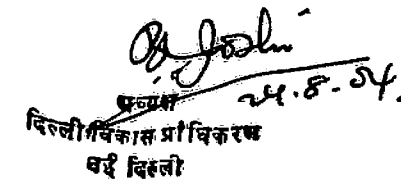 24.8.54.
अध्यक्ष
दिल्ली विकास प्राधिकरण
नई दिल्ली